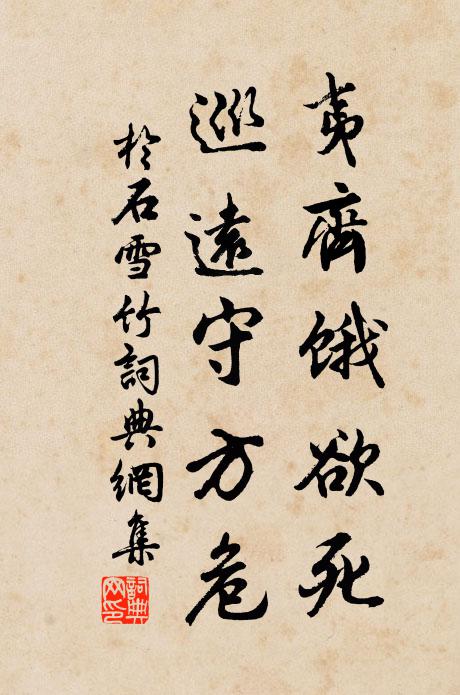 夷齊餓欲死
巡遠守方危
於石雪竹詞典網集
詞典网印